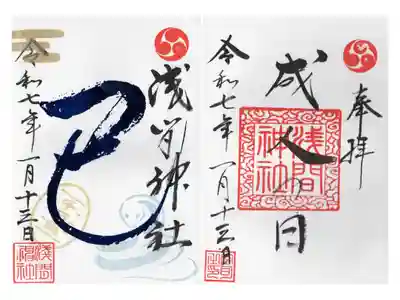 奉拝
成人の日
浅間
神社
令和七年 一月十三日
浅間神社
巳
令和七年 一月十三日